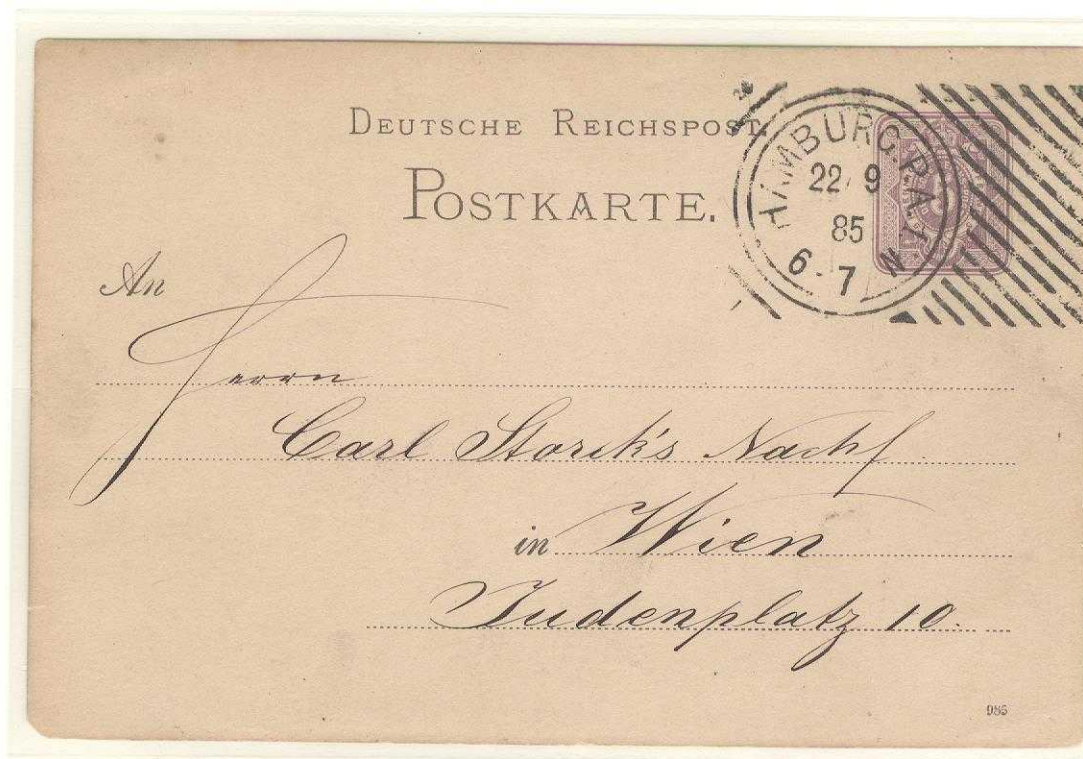 DEUTSCHE REICHSPOST.
POSTKARTE.
HAMBURG.P.A.1
22/9
85
6-7 N
An
Herrn
Carl Storck's Nachf
in Wien
Judenplatz 10.
985